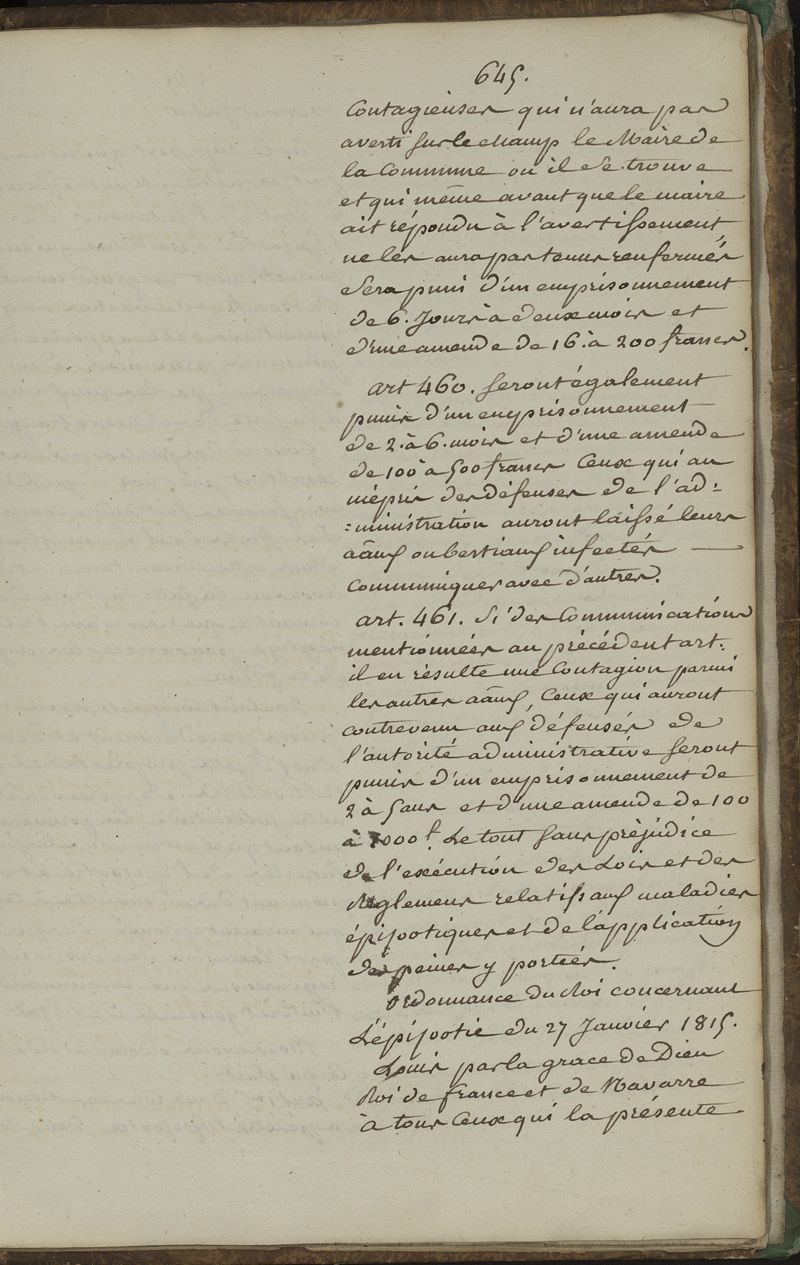 645.
Contagieuses qui n'aura pas
averti sur le champ le Maire de
la Commune ou il se trouve
et qui même avant que le maire
ait répondu à l'avertissement,
ne les aura pas tenus renfermés
Sera puni d'un emprisonnement
de 6. Jours à deux mois et
d'une amende de 16. à 200 francs.
art 460. Seront également
punis d'un emprisonnement
de 2. à 6. mois et d'une amende
de 100 à 500 francs Ceux qui au
mépris des défenses de l'ad=
=ministration auront laissé leurs
aãux ou bestiaux infectés —
Communiquer avec d'autres.
art. 461. Si des Communications
mentionnées au précédent art.
il en résulte une Contagion parmi
les autres aãux, Ceux qui auront
contrevenu aux défenses de
l'autorité administrative seront
punis d'un emprisonnement de
2 à 5 ans et d'une amende de 100
à 1000 f. Le tout sans préjudice
de l'exécution des Loix et des
Réglemens relatifs aux maladies
épizootiques et de l'application
des peines y portées.
Ordonnance du Roi concernant
L'épizootie du 27 Janvier 1815.
Louis par la grace de Dieu
Roi de france et de Navarre
à tous Ceux qui la présente